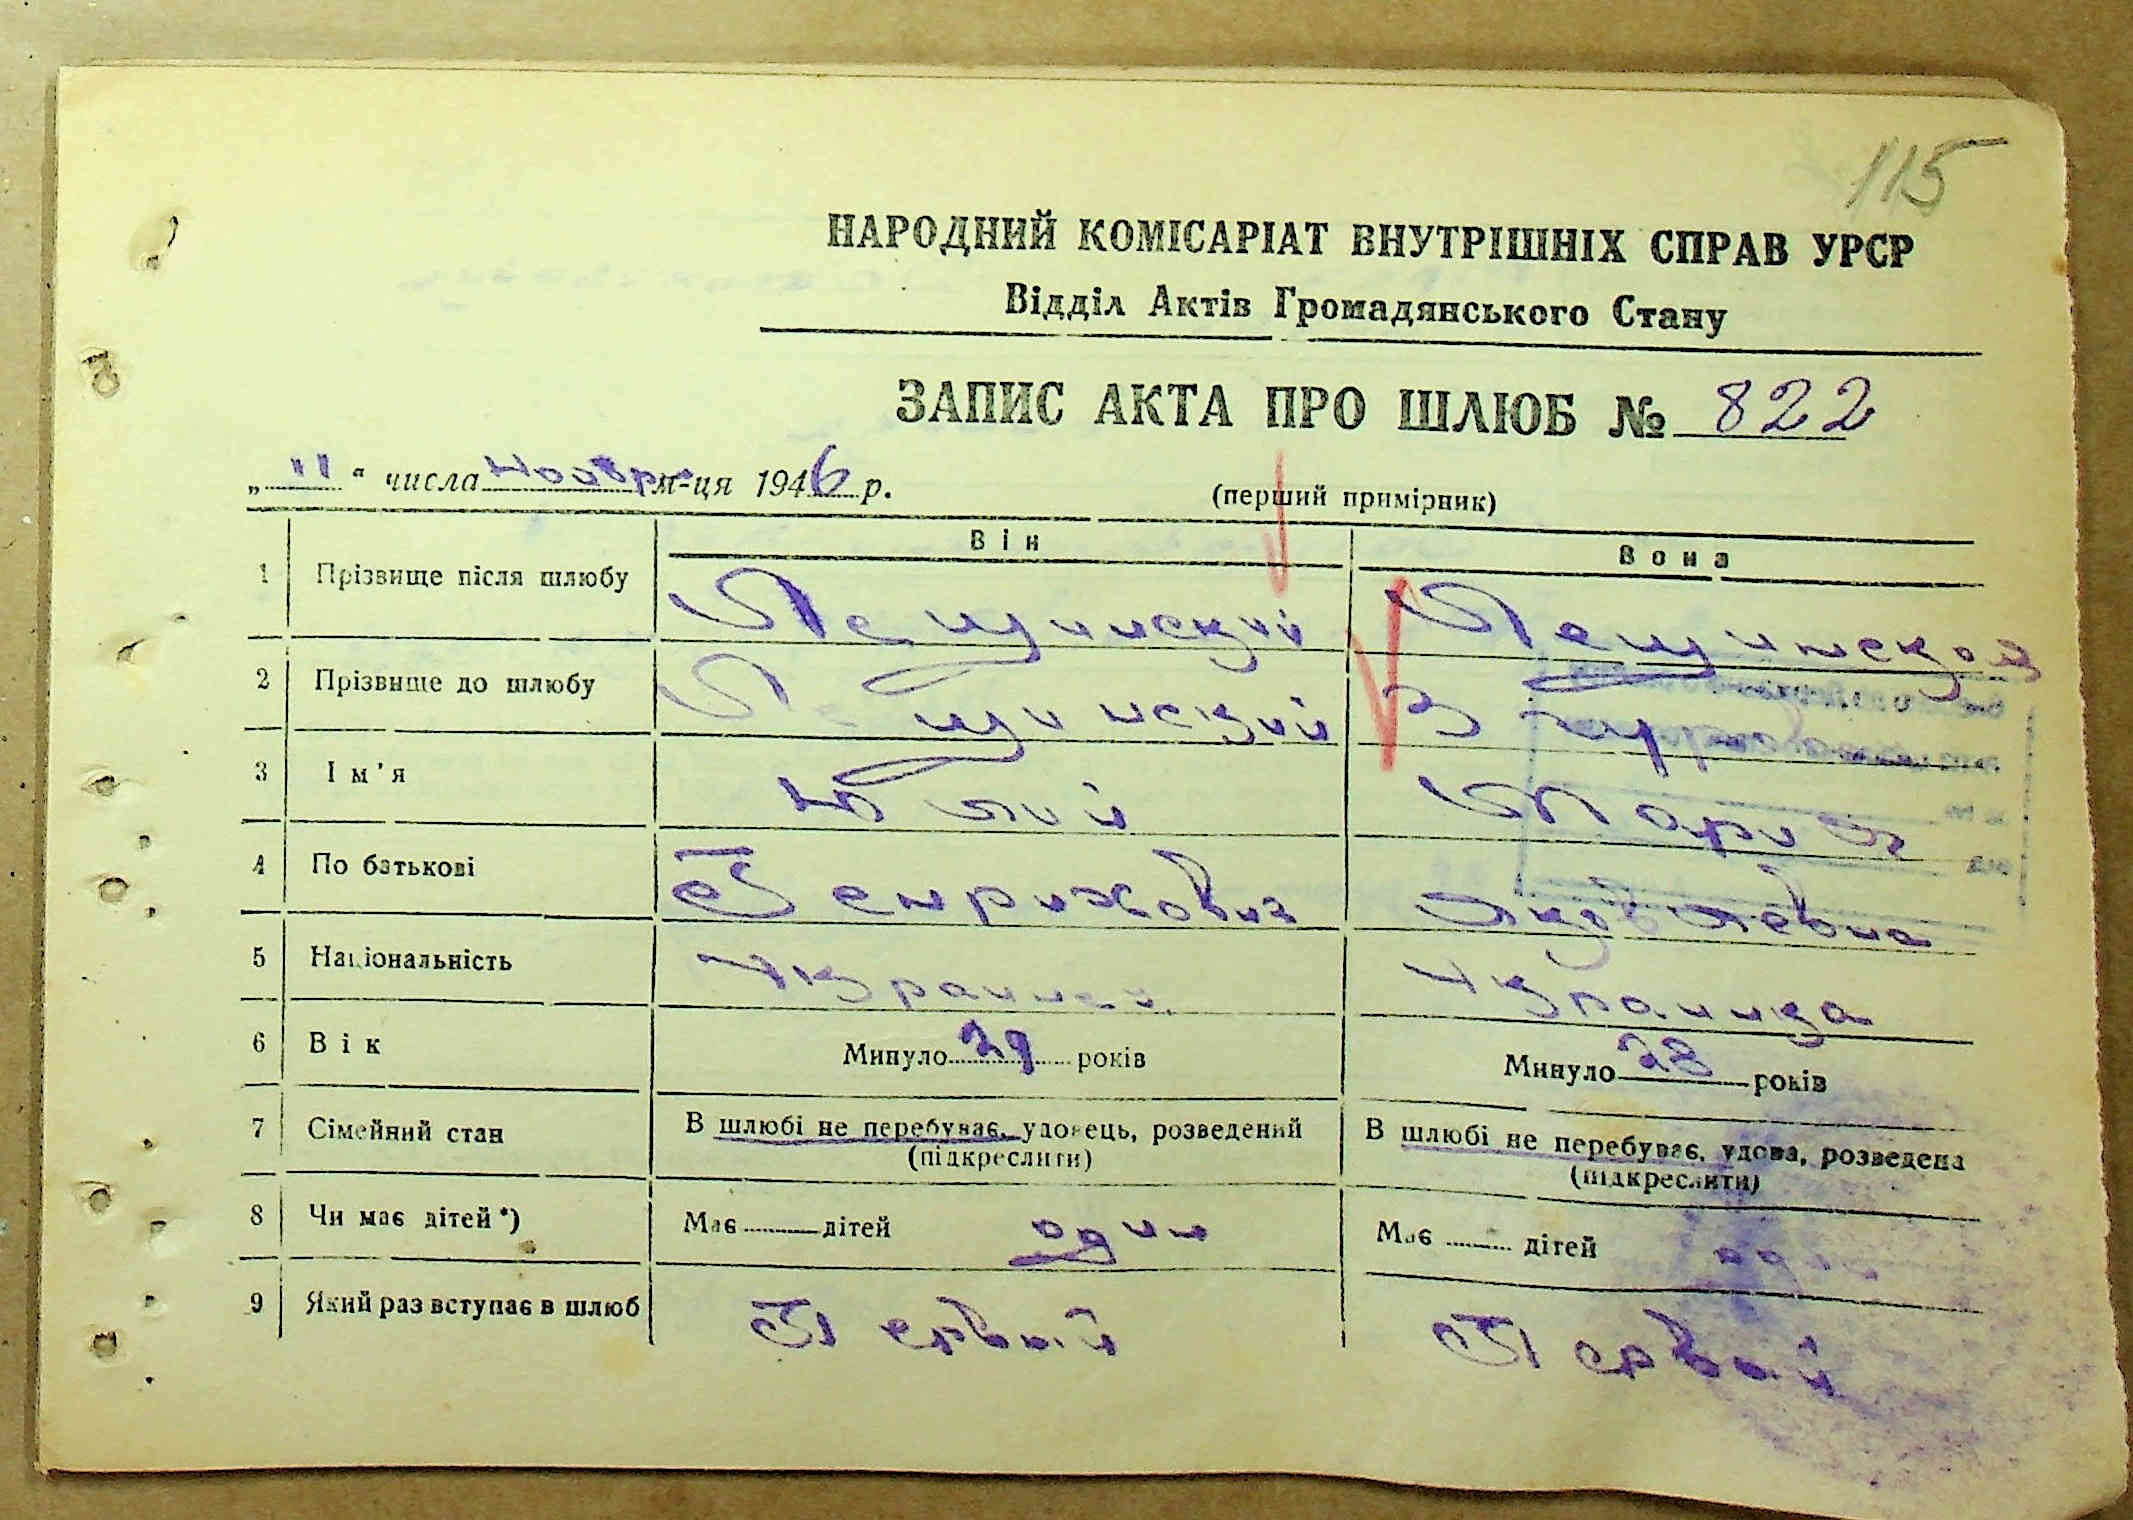 115
НАРОДНИЙ КОМІСАРІАТ ВНУТРІШНІХ СПРАВ УРСР
Відділ Актів Громадянського Стану
ЗАПИС АКТА ПРО ШЛЮБ № 822
„11“ числа ноября м-ця 1946 р.
(перший примірник)
Він Вона
1 Прізвище після шлюбу Лещинский Лещинская
2 Прізвище до шлюбу Лещинский
3 Ім'я Юлий Мария
4 По батькові Генрихович Яковлевна
5 Національність Украинец Украинка
6 Вік Минуло 29 років Минуло 28 років
7 Сімейний стан В шлюбі не перебуває, удовець, розведений В шлюбі не перебуває, удова, розведена
(підкреслити) (підкреслити)
8 Чи має дітей*) Має дітей один Має дітей один
9 Який раз вступає в шлюб Первый Первый